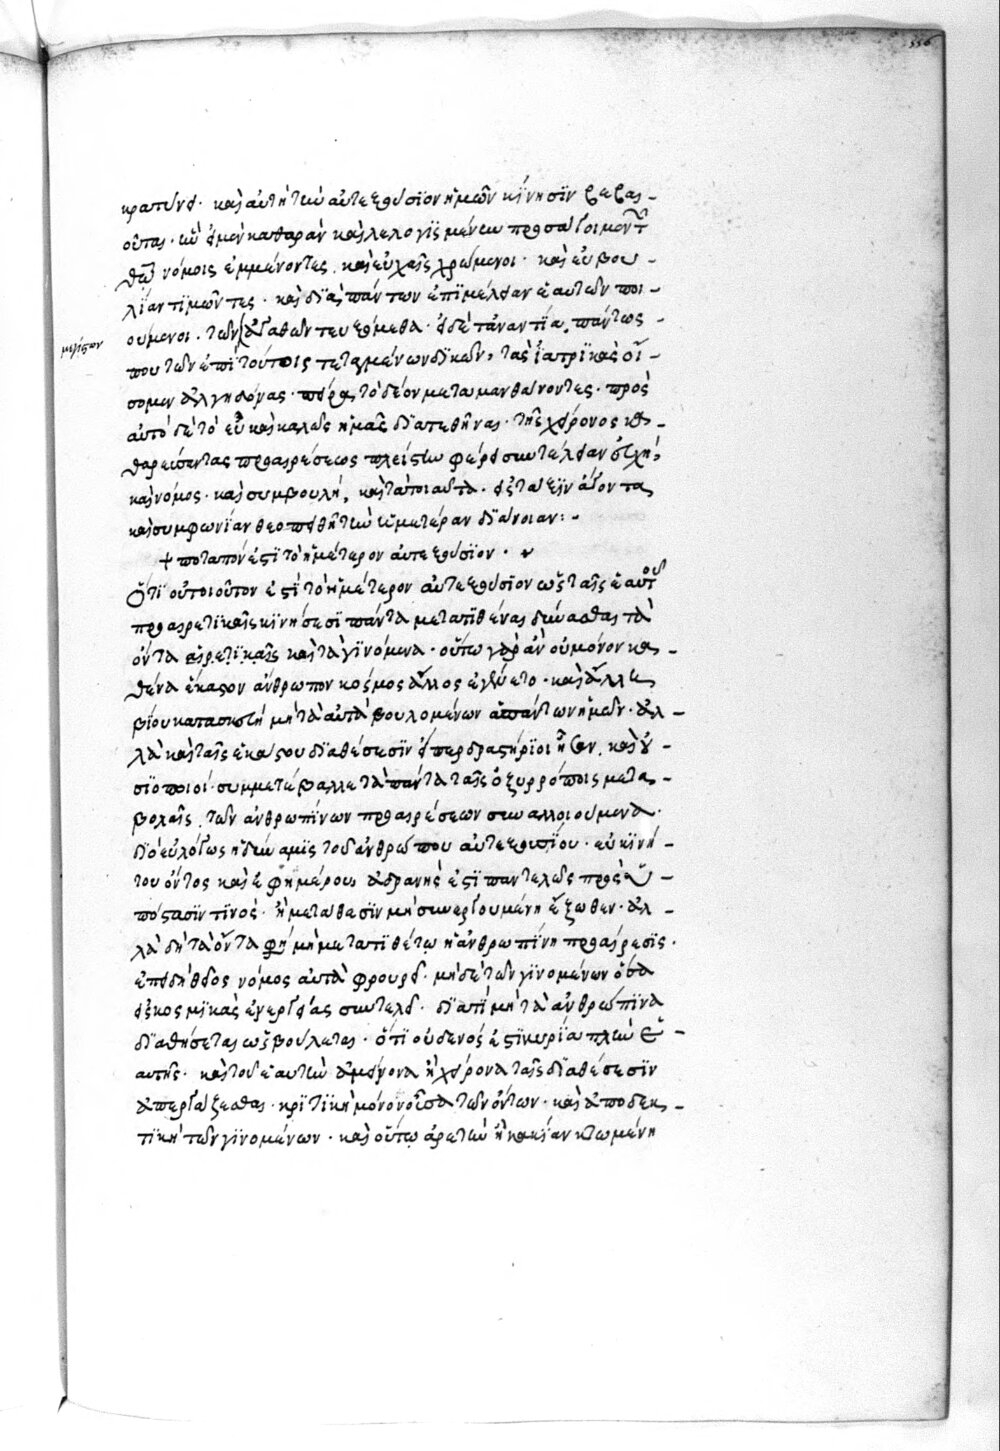 556
κρατύνει· καὶ αὐτὴ τὴν αὐτεξούσιον ἡμῶν κίνησιν βεβαι-
οῦται· εἰ μὲν καθαρὰν καὶ λελογισμένην προσάγοιμεν τῷ
θεῷ νόμοις ἐμμένοντες, καὶ εὐχαῖς χρώμενοι· καὶ εὐβου-
λίαν τιμῶντες· καὶ διὰ πάντων ἐπιμέλειαν ἑαυτῶν ποι-
ούμενοι· τῶν ἀγαθῶν τευξόμεθα· εἰ δὲ τἀναντία, πάντως
μεγίστων
που τῶν ἐπὶ τούτοις τεταγμένων δικῶν, τὰς ἰατρικὰς οἴ-
σομεν ἀλγηδόνας· πείρᾳ τὸ δέον μεταμανθάνοντες· πρὸς
αὐτὸ δὲ τὸ εὖ καὶ καλῶς ἡμᾶς διατεθῆναι· τῆς χείρονος κα-
θαρεύσαντας προαιρέσεως πλείστην φέρει συντέλειαν εὐχή,
καὶ νόμος· καὶ συμβουλή, καὶ τὰ τοιαῦτα· εἰς τάξιν ἄγοντα
καὶ συμφωνίαν θεοπειθῆ τὴν ἡμετέραν διάνοιαν:-
+ ποταπόν ἐστι τὸ ἡμέτερον αὐτεξούσιον·
Ὅτι οὐ τοιοῦτον ἐστὶ τὸ ἡμέτερον αὐτεξούσιον ὡς ταῖς ἑαυτοῦ
προαιρετικαῖς κινήσεσι πάντα μετατιθέναι δύνασθαι τὰ
ὄντα αἱρετικαῖς καὶ τὰ γινόμενα· οὕτω γὰρ ἂν οὐ μόνον κα-
θένα ἕκαστον ἄνθρωπον κόσμος ἄλλος ἐγένετο· καὶ ἄλλη
βίου κατασκευὴ μὴ τὰ αὐτὰ βουλομένων ἁπάντων ἡμῶν· ἀλ-
λὰ καὶ ταῖς ἑκάστου διαθέσεσιν εἴπερ δραστήριοι ἦσαν, καὶ οὐ-
σιοποιοί· συμμετέβαλλε τὰ πάντα ταῖς ὀξυρρόποις μετα-
βολαῖς τῶν ἀνθρωπίνων προαιρέσεων συναλλοιούμενα·
διὸ εὐλόγως ἡ δύναμις τοῦ ἀνθρώπου αὐτεξουσίου· εὐκινή-
του ὄντος καὶ ἐφημέρου, ἀδρανής ἐστι παντελῶς πρὸς ὑ-
πόστασίν τινος· ἢ μετάθεσιν μὴ συνεργουμένη ἔξωθεν· ἀλ-
λὰ δὴ τὰ ὄντα φησὶ μὴ μετατιθέτω ἡ ἀνθρωπίνη προαίρεσις·
ἐπειδὴ θεῖος νόμος αὐτὰ φρουρεῖ· μηδὲ τῶν γινομένων ὅσα
εἰς κοσμικὰς ἐνεργείας συντελεῖ· διατί μὴ τὰ ἀνθρώπινα
διαθήσεται ὡς βούλεται· ὅτι οὐδενός ἐστι κυρία πλὴν ἑ-
αυτῆς· καὶ τοῦ ἑαυτὴν ἀμείνονα ἢ χείρονα ταῖς διαθέσεσιν
ἀπεργάζεσθαι· κριτικὴ μόνον οὖσα τῶν ὄντων· καὶ ἀποδεκ-
τικὴ τῶν γινομένων· καὶ οὕτω ἀρετὴν ἢ κακίαν κτωμένη